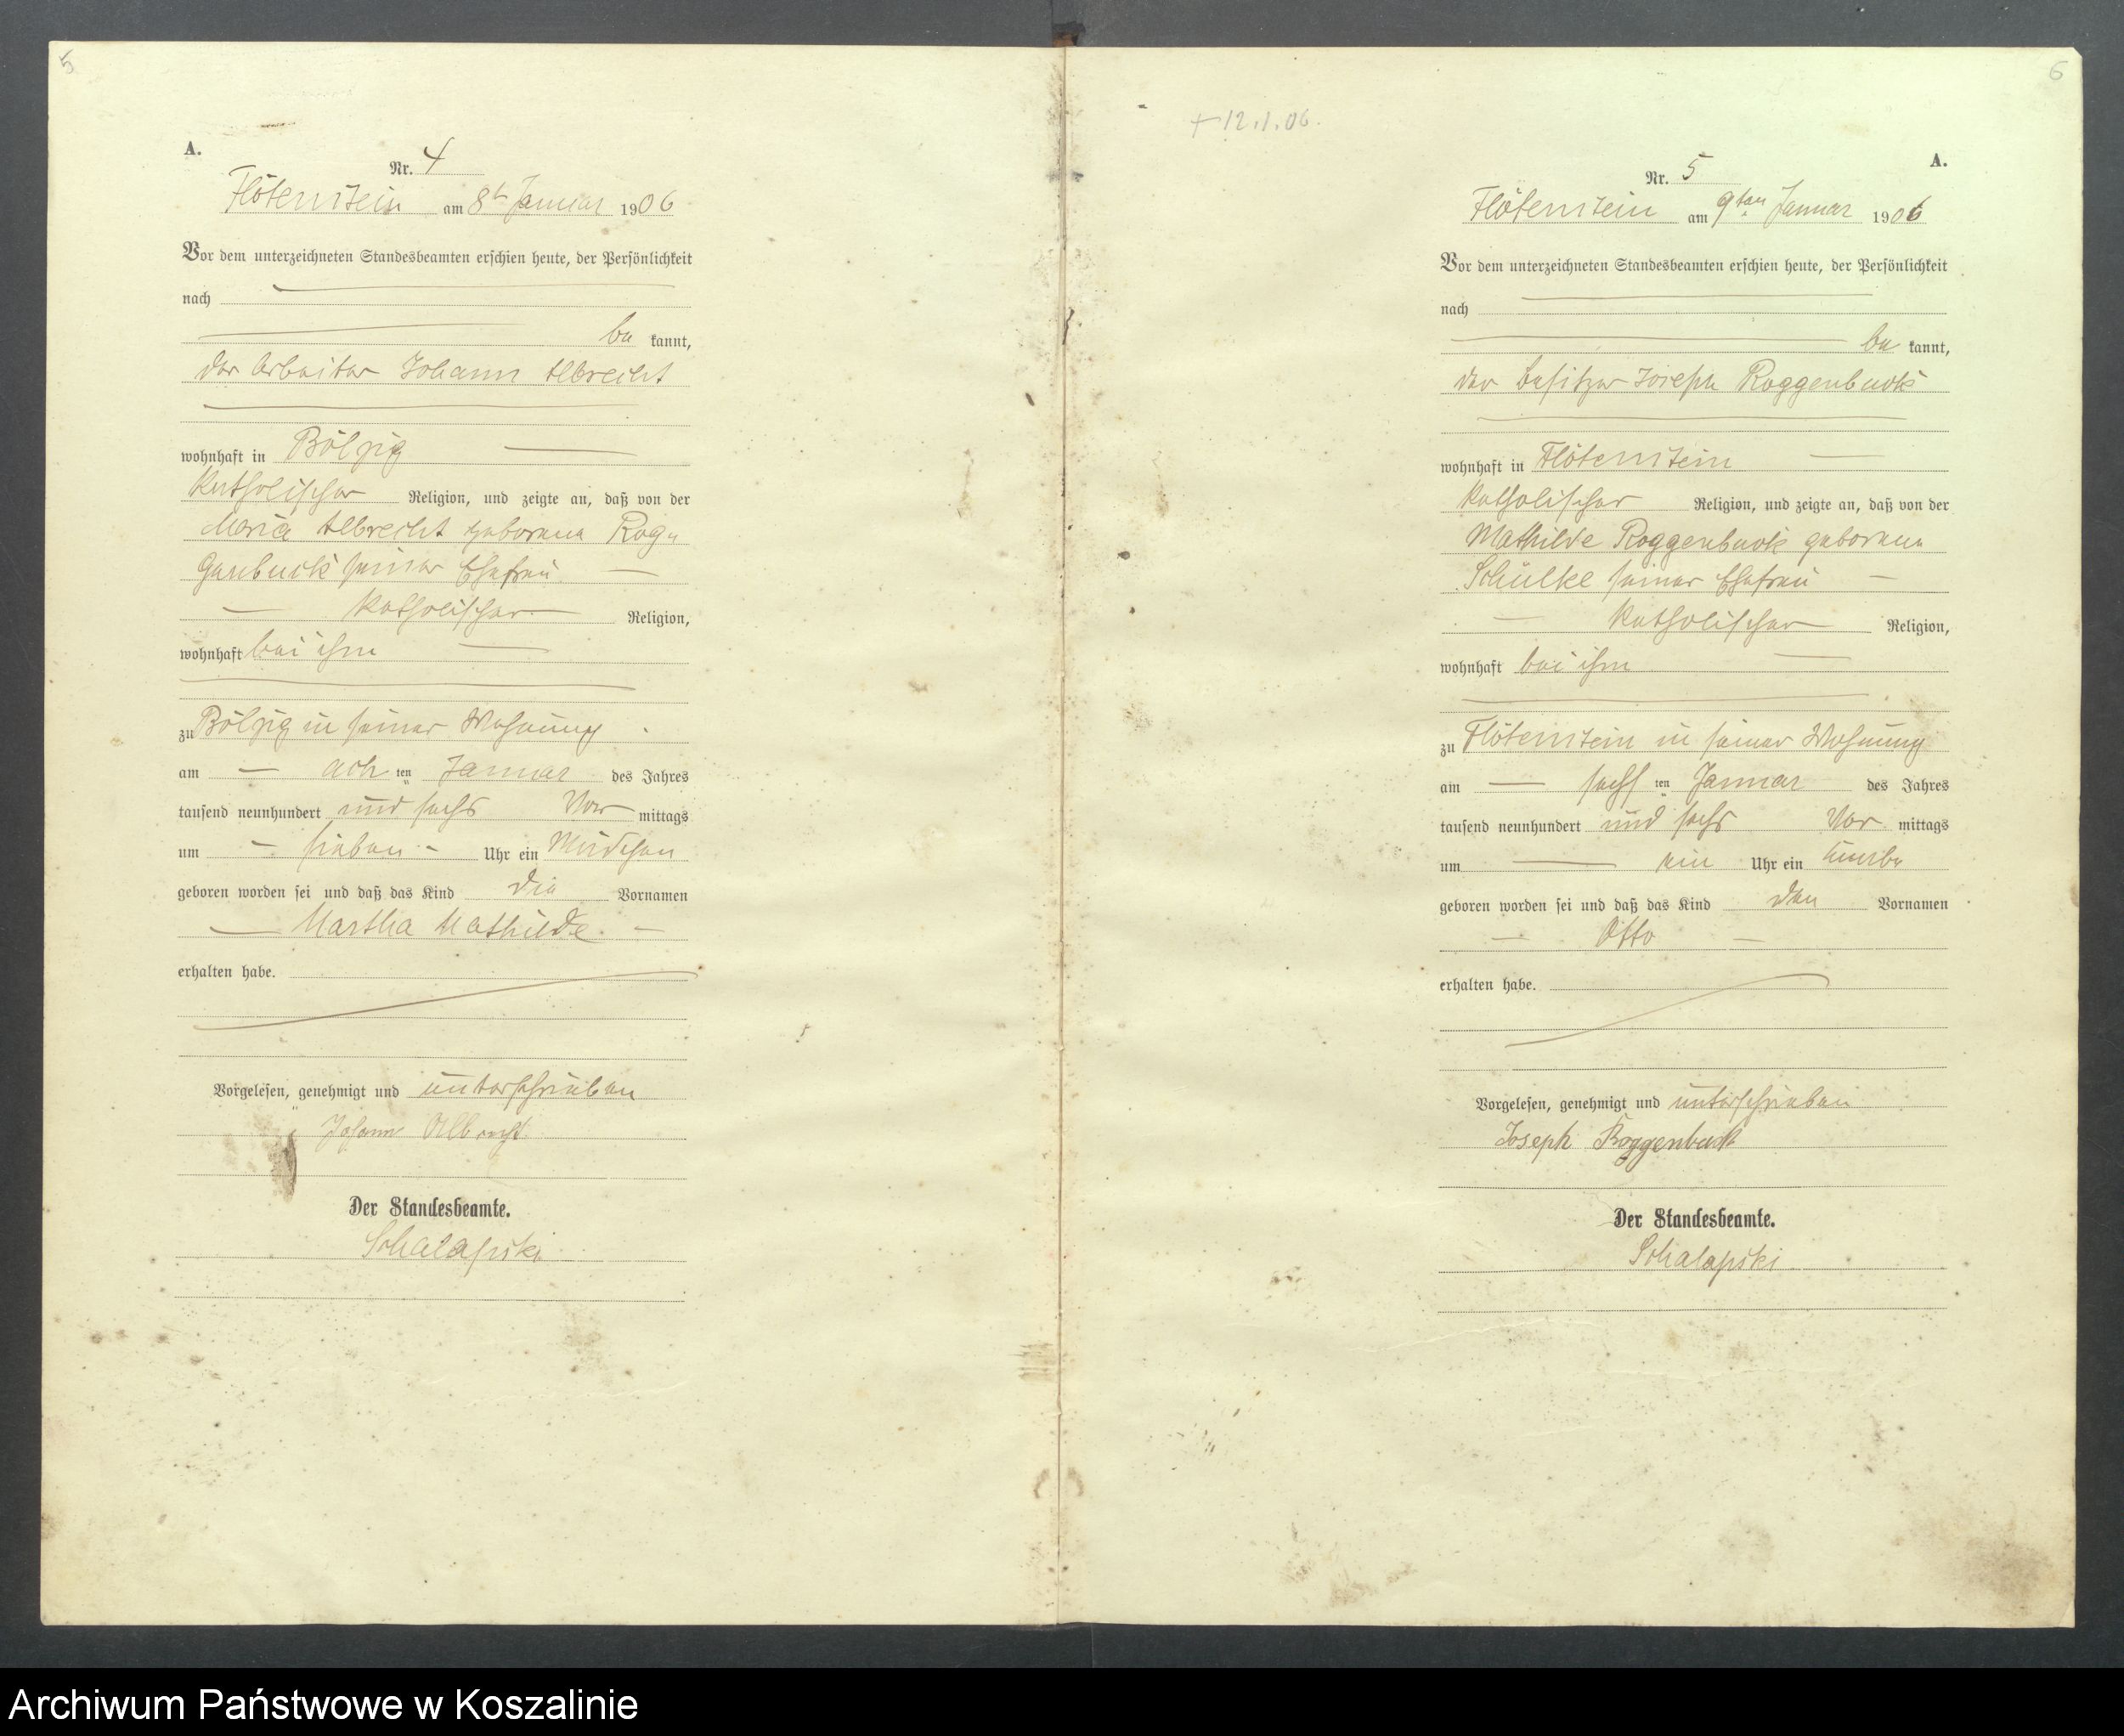 5
A.
Nr. 4
Flötenstein am 8t Januar 1906
Vor dem unterzeichneten Standesbeamten erschien heute, der Persönlichkeit
nach
be kannt,
der Arbeiter Johann Albrecht
wohnhaft in Bölzig
katholischer Religion, und zeigte an, daß von der
Maria Albrecht geborene Rog„
genbuck seiner Ehefrau
katholischer Religion,
wohnhaft bei ihm
zu Bölzig in seiner Wohnung
am ach ten Januar des Jahres
tausend neunhundert und sechs Vor mittags
um sieben Uhr ein Mädchen
geboren worden sei und daß das Kind die Vornamen
Martha Mathilde
erhalten habe.
Vorgelesen, genehmigt und unterschrieben
Johann Albrecht
Der Standesbeamte.
6
+ 12.1.06.
A.
Nr. 5
Flötenstein am 9ten Januar 1906
Vor dem unterzeichneten Standesbeamten erschien heute, der Persönlichkeit
nach
be kannt,
der Besitzer Joseph Roggenbuck
wohnhaft in Flötenstein
katholischer Religion, und zeigte an, daß von der
Mathilde Roggenbuck geborene
Schülke seiner Ehefrau
katholischer Religion,
wohnhaft bei ihm
zu Flötenstein in seiner Wohnung
am sechs ten Januar des Jahres
tausend neunhundert und sechs Vor mittags
um ein Uhr ein Knabe
geboren worden sei und daß das Kind den Vornamen
Otto
erhalten habe.
Vorgelesen, genehmigt und unterschrieben
Joseph Roggenbuck
Der Standesbeamte.
Archiwum Państwowe w Koszalinie